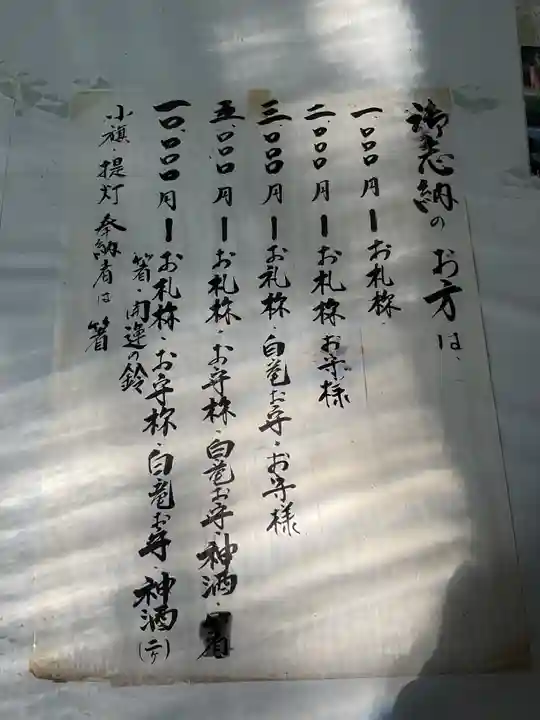 御志納のお方は、
一、〇〇〇円ーお札様、
二、〇〇〇円ーお札様お守様
三、〇〇〇円ーお札様・白竜お守・お守様
五、〇〇〇円ーお札様・お守様・白竜お守・神酒・
一〇、〇〇〇円ーお札様・お守様・白竜お守・神酒(二ケ)
箸・開運の鈴
小旗・提灯奉納者は箸